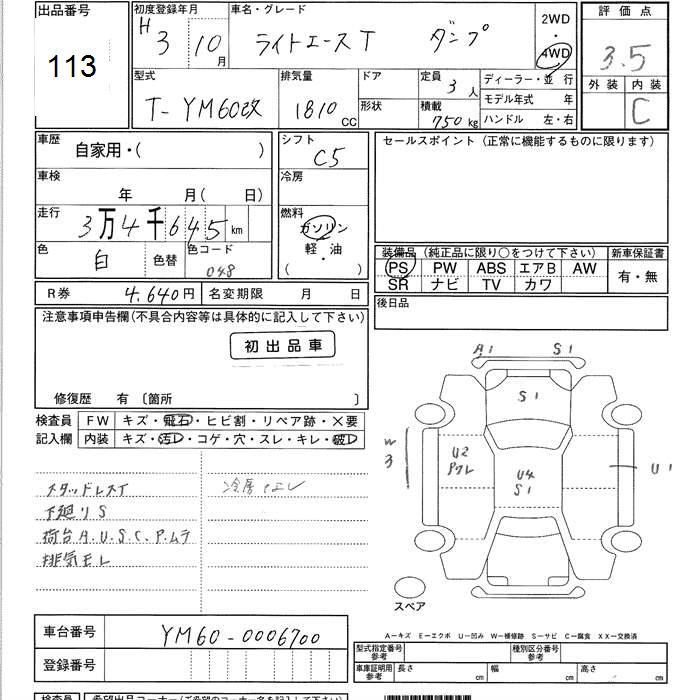 出品番号
113
初度登録年月
H 3 10月
車名・グレード
ライトエースT ダンプ
2WD
・
4WD
評価点
3.5
外装 内装
C
型式
T-YM60改
排気量
1810 CC
ドア
形状
定員
3人
積載
750kg
ディーラー・並行
モデル年式 年
ハンドル 左・右
車歴
自家用・( )
シフト
C5
セールスポイント (正常に機能するものに限ります)
車検
年 月( 日)
冷房
走行
3万4千645km
燃料
ガソリン
軽・油
( )
色
白
色替
色コード
048
装備品 (純正品に限り○をつけて下さい)
新車保証書
PS PW ABS エアB AW
SR ナビ TV カワ
有・無
R券 4,640円
名変期限 月 日
後日品
注意事項申告欄(不具合内容等は具体的に記入して下さい)
初出品車
修復歴 有 〔箇所 〕
検査員
記入欄
FW キズ・飛石・ヒビ割・リペア跡・×要
内装 キズ・汚レ・コゲ・穴・スレ・キレ・破レ
スタッドレスT
下廻りS
荷台A.U.S.C.P.ムラ
排気モレ
A1 S1
S1
W3
U2
Pクレ
U4
S1
U1
スペア
車台番号
YM60-0006700
登録番号
A-キズ E-エクボ U-凹み W-補修跡 S-サビ C-腐食 XX-交換済
型式指定番号
参考
種別区分番号
参考
車庫証明用
参考
長さ cm 幅 cm 高さ cm
検査員
希望出品コーナー(ご希望のコーナー名を記入下さい)